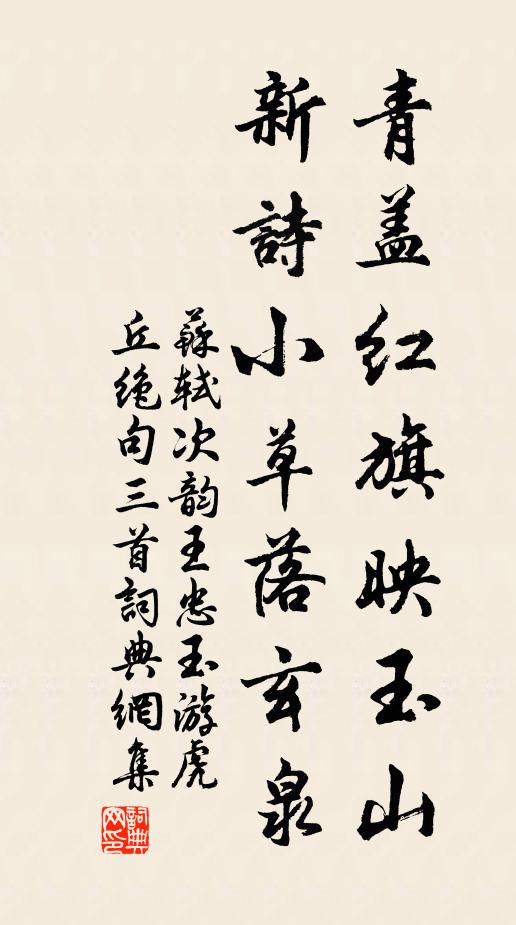 青盖红旗映玉山
新詩小草落玄泉
蘇轼次韵王忠玉游虎
丘绝句三首詞典網集
詞典
网印